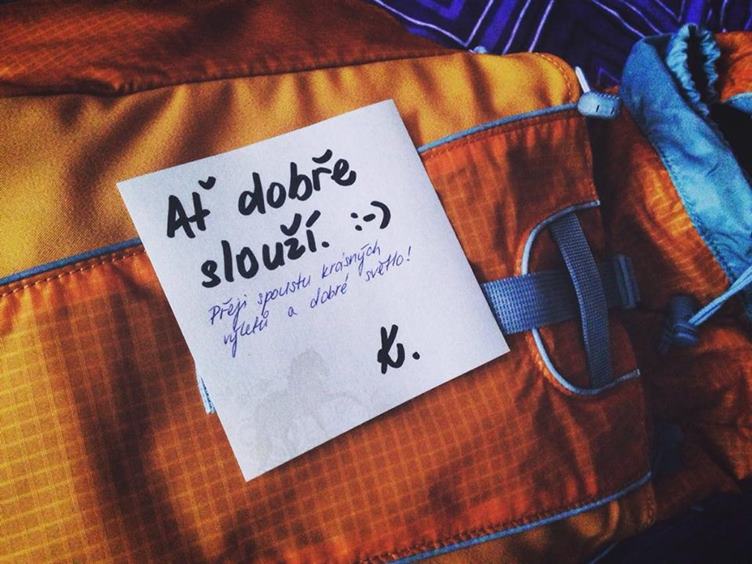 Ať dobře
slouží. :-)
Přeji spoustu krásných
výletů a dobré světlo!
K.